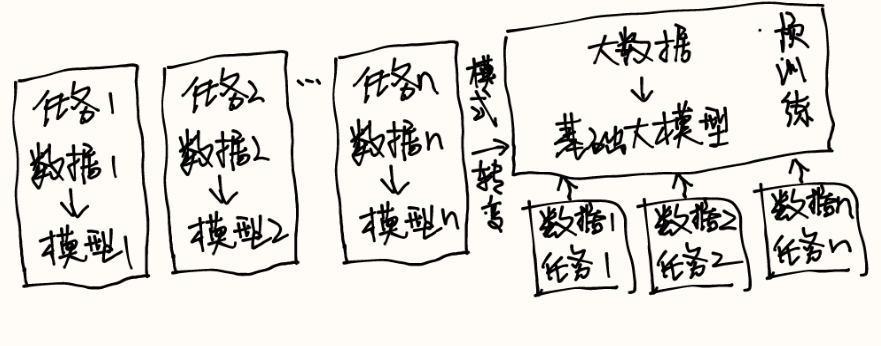 任务1
数据1
↓
模型1
任务2
数据2
↓
模型2
...
任务n
数据n
↓
模型n
模式
→
转变
大数据
↓
基础大模型
预训练
↑
数据1
任务1
↑
数据2
任务2
↑
数据n
任务n